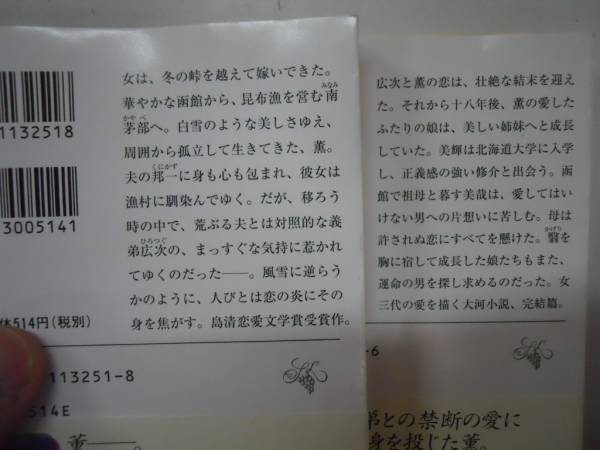 1132518
3005141
体514円(税別)
女は、冬の峠を越えて嫁いできた。
華やかな函館から、昆布漁を営む南
茅部へ。白雪のような美しさゆえ、
周囲から孤立して生きてきた、薫。
夫の邦一に身も心も包まれ、彼女は
漁村に馴染んでゆく。だが、移ろう
時の中で、荒ぶる夫とは対照的な義
弟広次の、まっすぐな気持に惹かれ
てゆくのだった――。風雪に逆らう
かのように、人びとは恋の炎にその
身を焦がす。島清恋愛文学賞受賞作。
113251-8
514E
薫――。
広次と薫の恋は、壮絶な結末を迎え
た。それから十八年後、薫の愛した
ふたりの娘は、美しい姉妹へと成長
していた。美輝は北海道大学に入学
し、正義感の強い修介と出会う。函
館で祖母と暮す美哉は、愛してはい
けない男への片想いに苦しむ。母は
許されぬ恋にすべてを懸けた。翳を
胸に宿して成長した娘たちもまた、
運命の男を探し求めるのだった。女
三代の愛を描く大河小説、完結篇。
-6
弟との禁断の愛に
身を投じた薫。